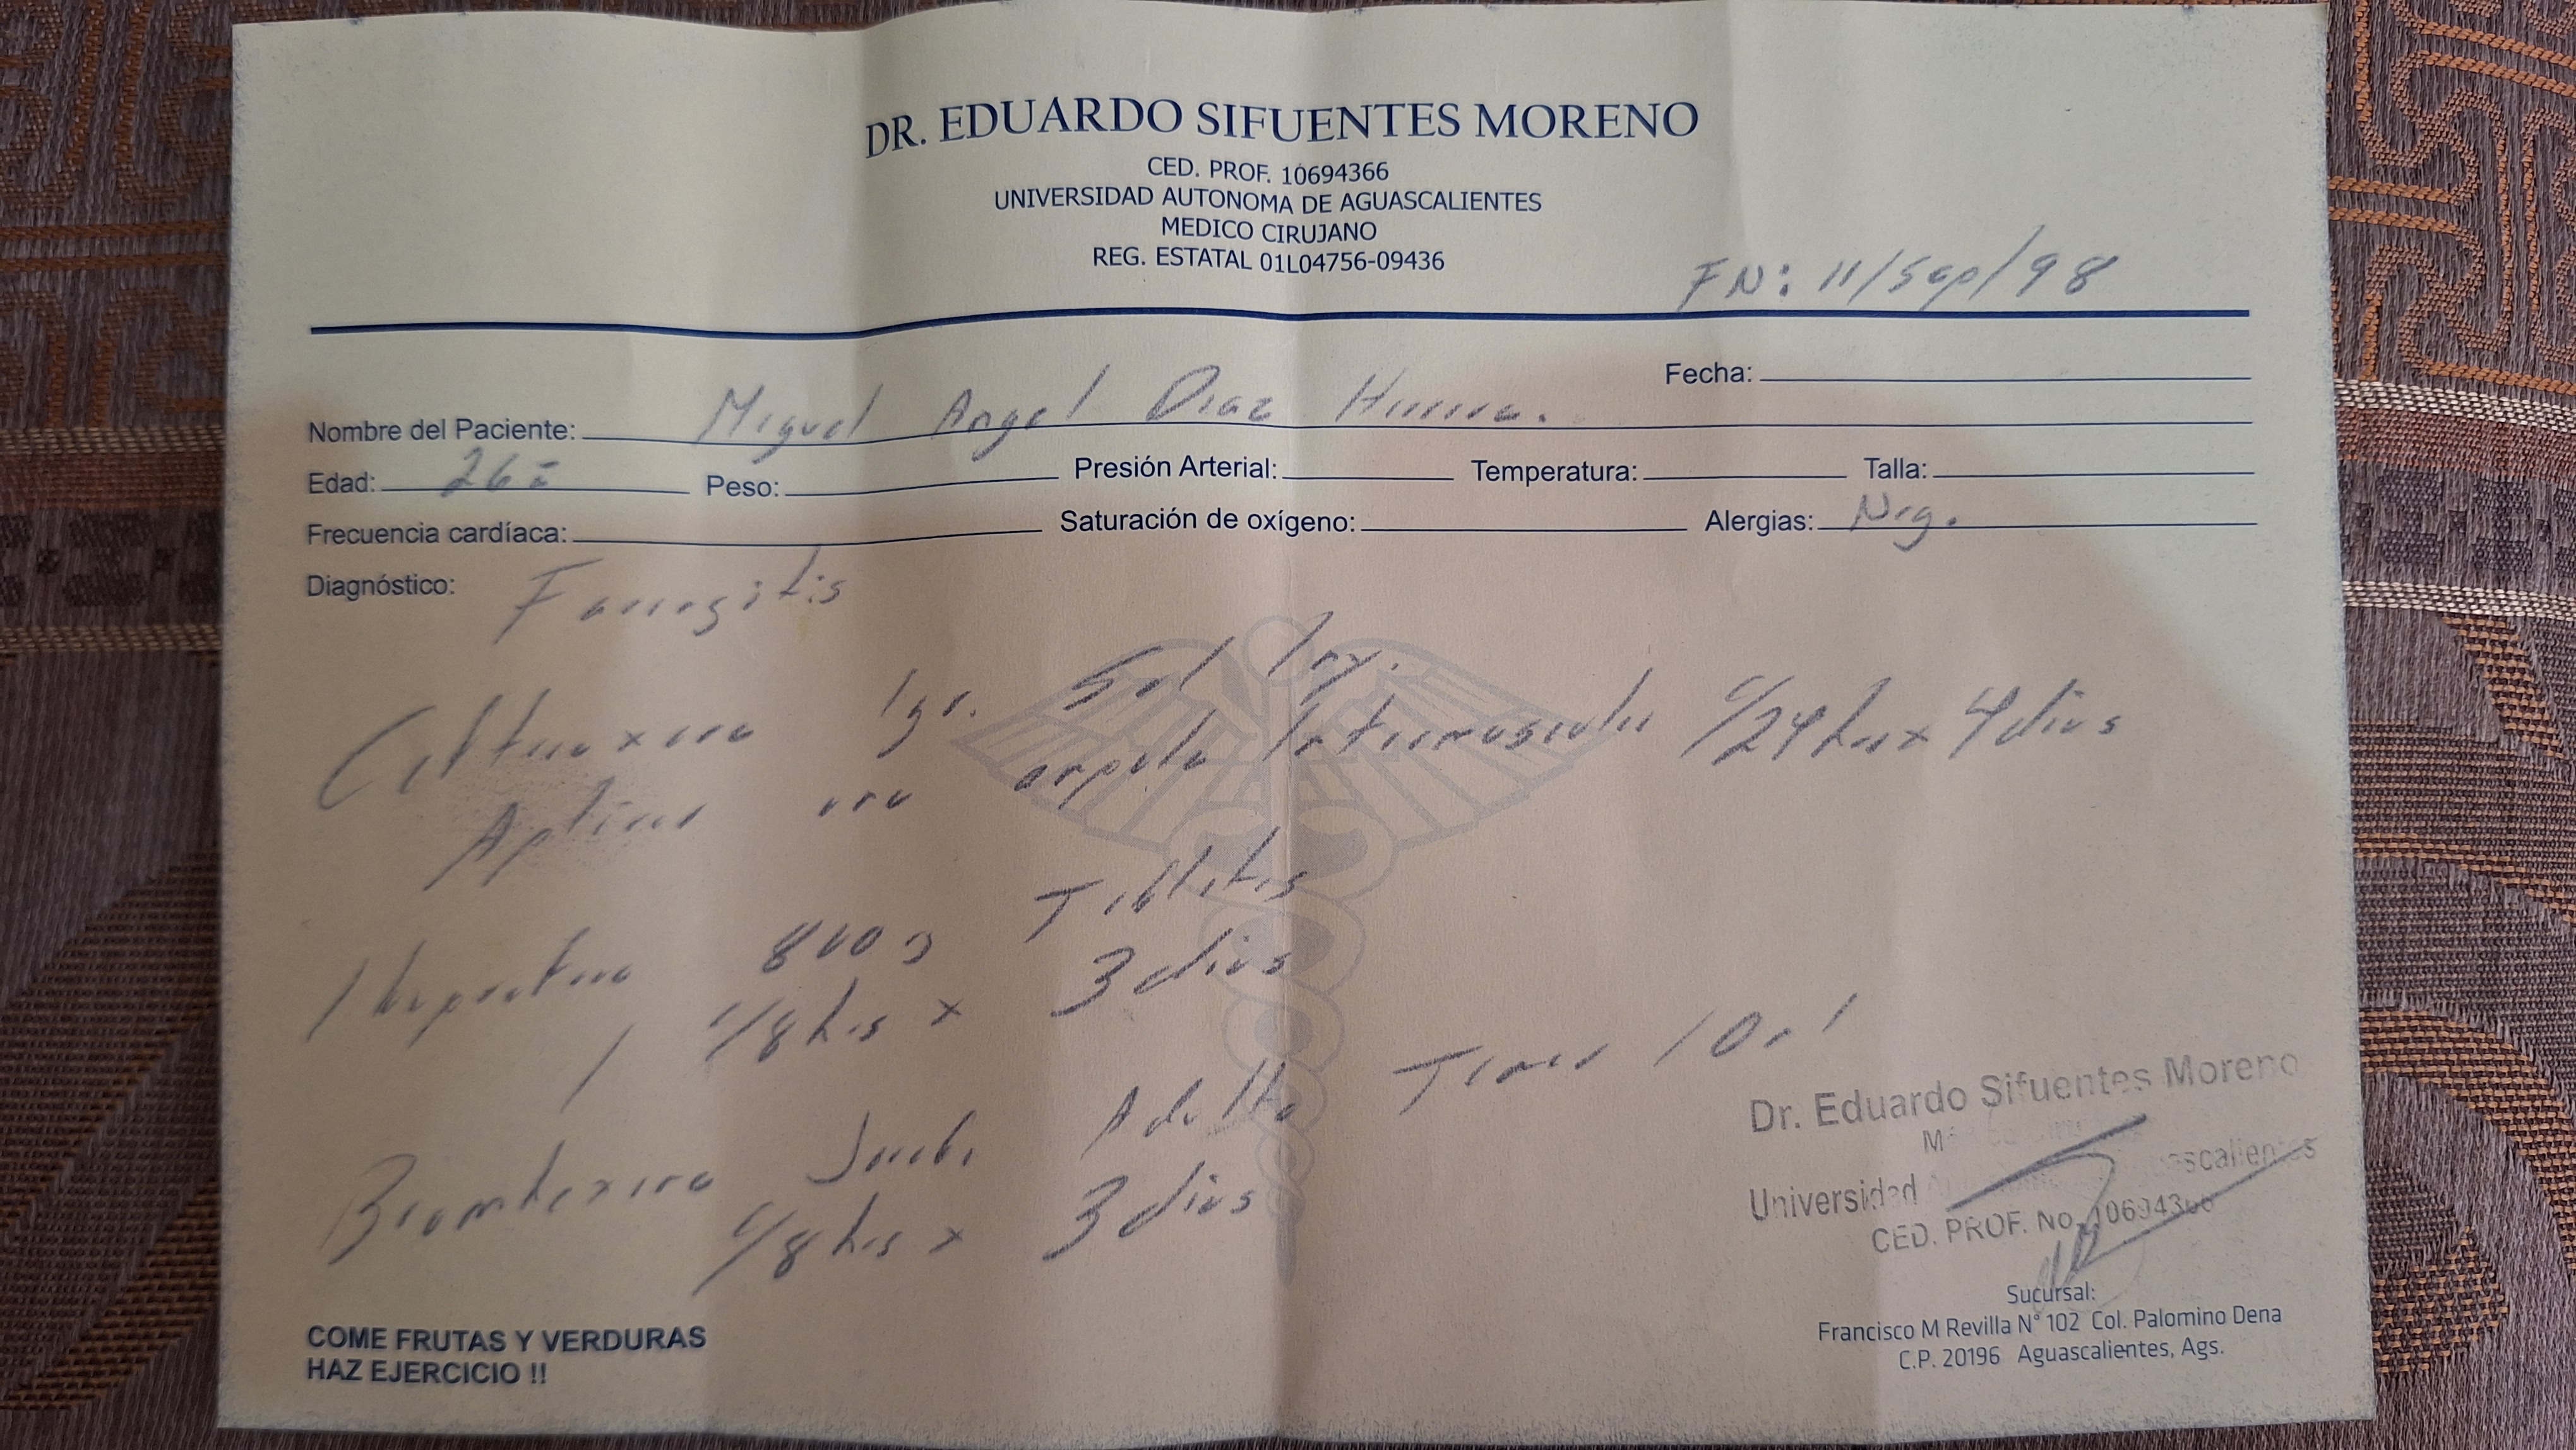 DR. EDUARDO SIFUENTES MORENO
CED. PROF. 10694366
UNIVERSIDAD AUTONOMA DE AGUASCALIENTES
MEDICO CIRUJANO
REG. ESTATAL 01L04756-09436
FN: 11/Sep/98
Fecha:
Nombre del Paciente: Miguel Angel Diaz
Edad: 26 Peso: Presión Arterial: Temperatura: Talla:
Frecuencia cardíaca: Saturación de oxígeno: Alergias: Neg.
Diagnóstico: Faringitis
Ceftriaxona 1gr. Sol Iny.
Aplicar una ampula Intramuscular c/24hrs x 4 dias
Ibuprofeno 800 Tabletas
1 c/8 hrs x 3 dias
Bromhexina Jarabe Adulto Tomar 10ml
c/8 hrs x 3 dias
Dr. Eduardo Sifuentes Moreno
Universidad
CED. PROF. No. 10694366
Sucursal:
Francisco M Revilla N° 102 Col. Palomino Dena
C.P. 20196 Aguascalientes, Ags.
COME FRUTAS Y VERDURAS
HAZ EJERCICIO !!